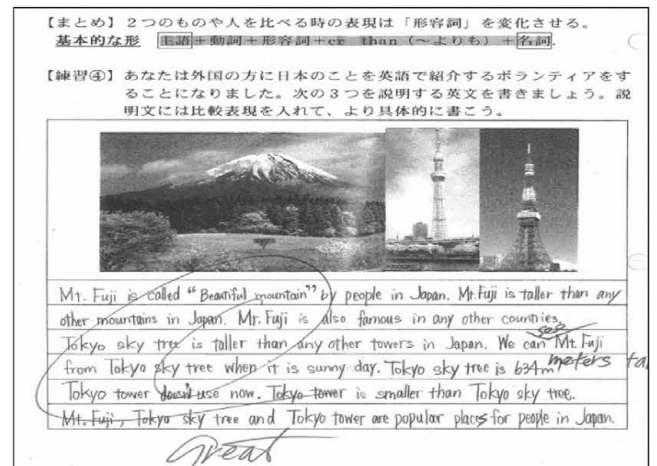 【まとめ】２つのものや人を比べる時の表現は「形容詞」を変化させる。
基本的な形 主語＋動詞＋形容詞＋er than（～よりも）＋名詞.
【練習④】あなたは外国の方に日本のことを英語で紹介するボランティアをす
ることになりました。次の３つを説明する英文を書きましょう。説
明文には比較表現を入れて、より具体的に書こう。
Mt. Fuji is called "Beautiful mountain" by people in Japan. Mt. Fuji is taller than any
other mountains in Japan. Mt. Fuji is also famous in any other countries.
see
Tokyo sky tree is taller than any other towers in Japan. We can Mt. Fuji
from Tokyo sky tree when it is sunny day. Tokyo sky tree is 634m
meters ta
Tokyo tower doesn't use now. Tokyo tower is smaller than Tokyo sky tree.
Mt. Fuji, Tokyo sky tree and Tokyo tower are popular places for people in Japan.
Great